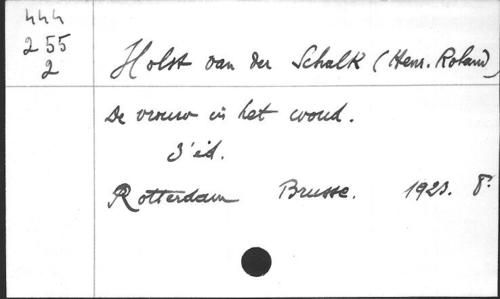 444
255
2
Holst van der Schalk (Henr. Roland)
De vrouw in het woud.
3' éd.
Rotterdam Brusse. 1923. 8°.